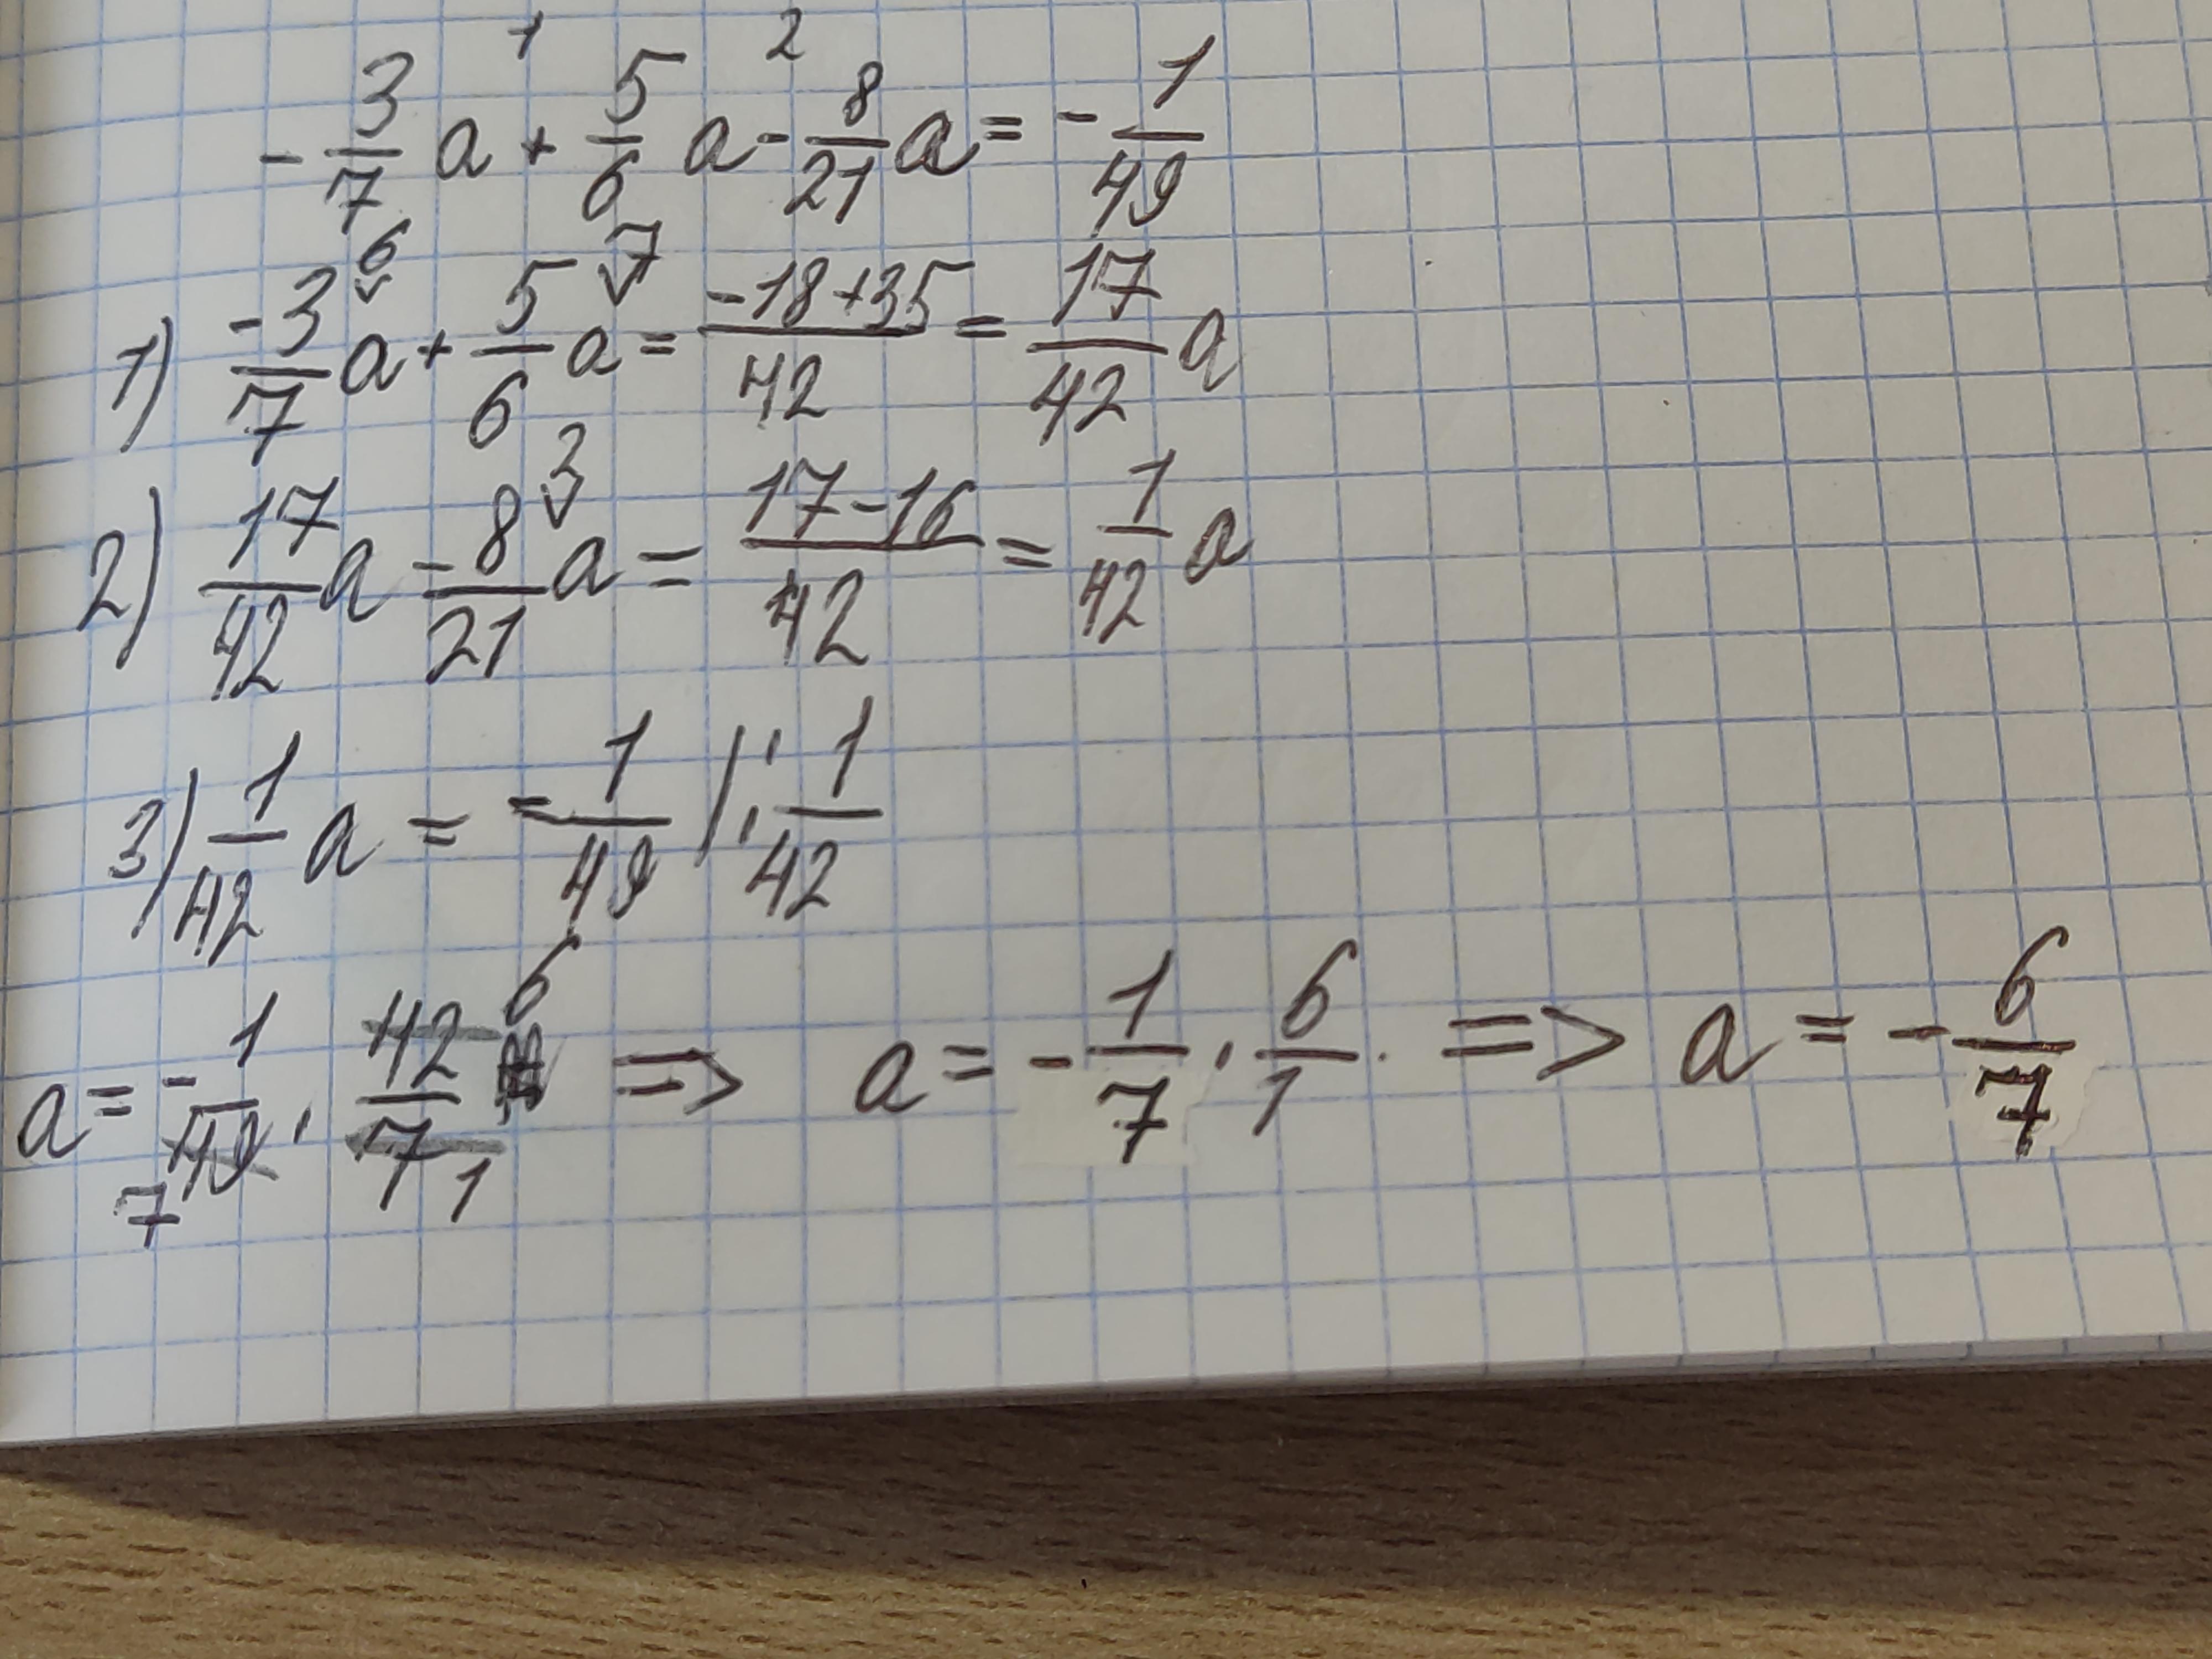 1 2
-3/7 a + 5/6 a - 8/21 a = -1/49
1) -3/7 ^6 a + 5/6 ^7 a = -18+35/42 = 17/42 a
2) 17/42 a - 8/21 ^2 a = 17-16/42 = 1/42 a
3) 1/42 a = -1/49 | : 1/42
a = -1/49 7 · 42/7 6 1 => a = -1/7 · 6/1 · => a = -6/7